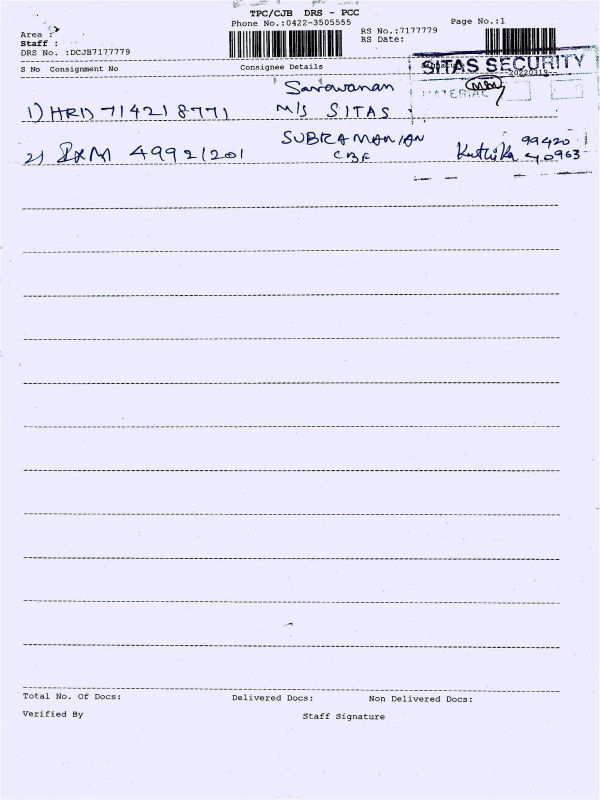 TPC/CJB DRS - PCC
Phone No.:0422-3505555
Page No.:1
Area :
Staff :
DRS No. :DCJB7177779
RS No.:7177779
RS Date:
S No Consignment No Consignee Details
SITAS SECURITY
20220319
MATERIAL
Saravanan
1) HRD 714218771 M/S SITAS
SUBRAMANIAN
2) 49921201 CBE
99420
40963
Total No. Of Docs: Delivered Docs: Non Delivered Docs:
Verified By Staff Signature